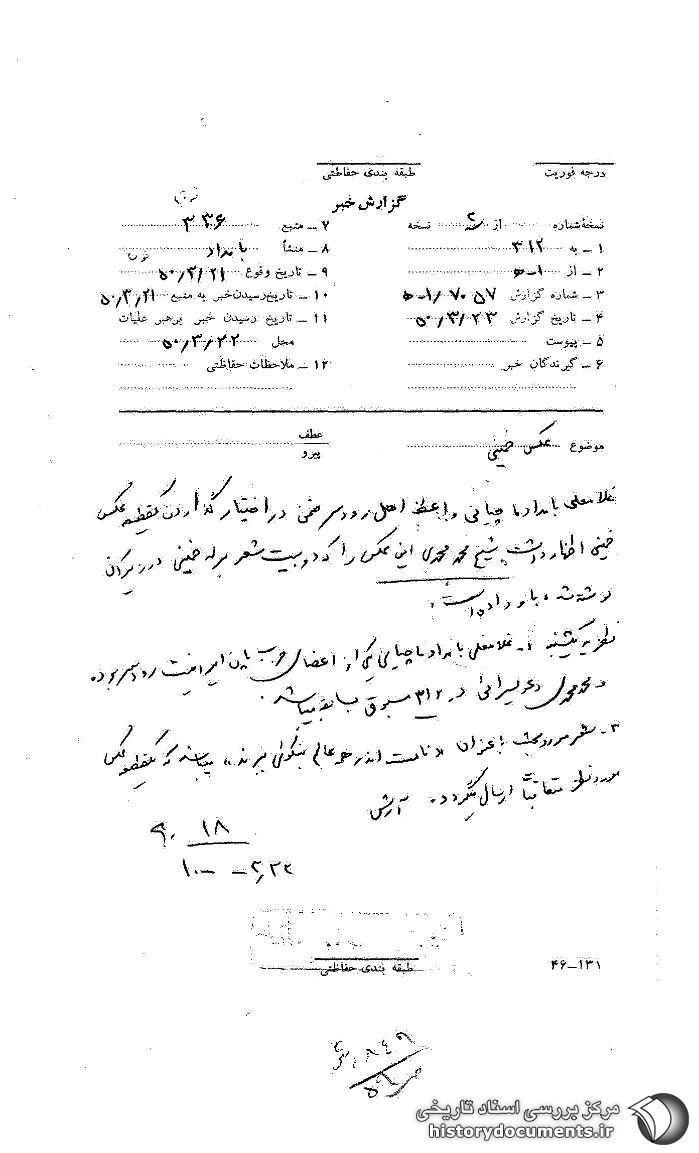 درجه فوریت
طبقه بندی حفاظتی
گزارش خبر
نسخهٔ شماره از نسخه
۱ ــ به ۳۱۲
۲ ــ از ۱-ﻫ
۳ ــ شماره گزارش ۷۰۵۷/۱-ﻫ
۴ ــ تاریخ گزارش ۵۰/۳/۲۳
۵ ــ پیوست
۶ ــ گیرندگان خبر
۷ ــ منبع ۳۳۶
۸ ــ منشأ بامداد
۹ ــ تاریخ وقوع ۵۰/۳/۲۱
۱۰ ــ تاریخ رسیدن خبر به منبع ۵۰/۳/۲۱
۱۱ ــ تاریخ رسیدن خبر برهبر عملیات
محل ۵۰/۳/۲۲
۱۲ ــ ملاحظات حفاظتی
موضوع عکس خمینی
عطف
پیرو
غلامعلی بامداد ماچیانی واعظ اهل رودسر ضمن در اختیار گذاردن یکقطعه عکس
خمینی اظهار داشت شیخ محمد محمدی این عکس را که دو بیت شعر برله خمینی در زیر آن
نوشته شده باو داده است.
نظریه یکشنبه ۱- غلامعلی بامداد ماچیانی یکی از اعضای حزب رودسر بوده
و محمد محمدی در ۳۱۲ مسبوق بسابقه میباشد.
۲- شعر مورد بحث با عنوان « نامت اندر همه عالم بنکوئی ببرند » میباشد که یکقطعه عکس
مورد نظر متعاقباً ارسال میگردد. آرش
۱۸
طبقه بندی حفاظتی
۴۶-۱۳۱
مرکز بررسی اسناد تاریخی
historydocuments.ir